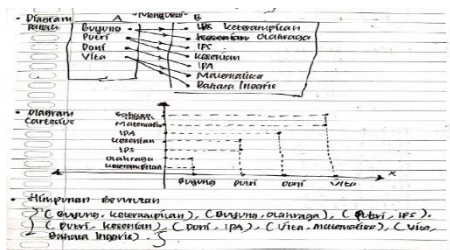 • Diagram Panah
A "Mengukur" B
Buyung
Putri
Doni
Vita
IPS keterampilan
kesenian Olahraga
IPS
kesenian
IPA
Matematika
Bahasa Inggris
• Diagram Cartesius
Bahasa
Matematika
IPA
kesenian
IPS
olahraga
keterampilan
Buyung Putri Doni Vita x
• Himpunan Berurutan
{ (Buyung, keterampilan), (Buyung, olahraga), (Putri, IPS),
(Putri, kesenian), (Doni, IPA), (Vita, matematika), (Vita,
Bahasa Inggris). }